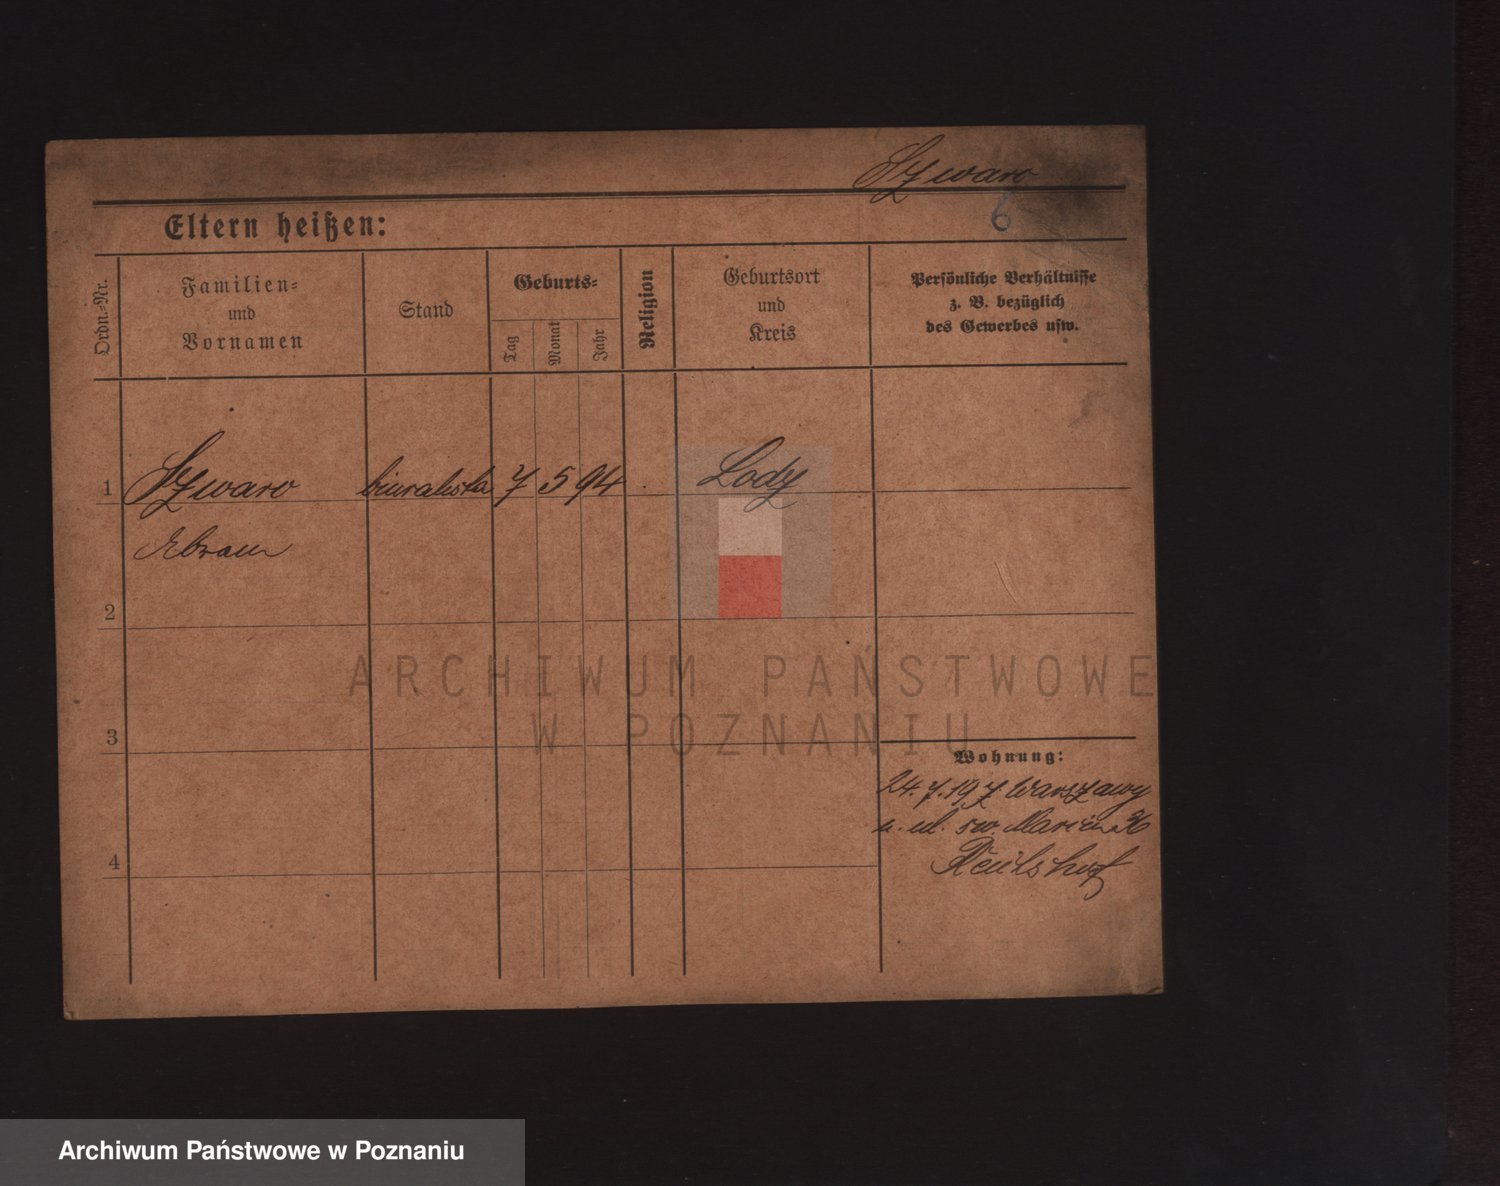 Szwaro
6
Eltern heißen:
Ordn.-Nr.
Familien-
und
Vornamen
Stand
Geburts-
Tag
Monat
Jahr
Religion
Geburtsort
und
Kreis
Persönliche Verhältnisse
z. B. bezüglich
des Gewerbes usw.
1 Szwaro biuralista 7 5 94
2
3
4
Wohnung:
24. 7. 19 z Warszawy
ul. św. Marcin 36
ARCHIWUM PAŃSTWOWE
W POZNANIU
Archiwum Państwowe w Poznaniu